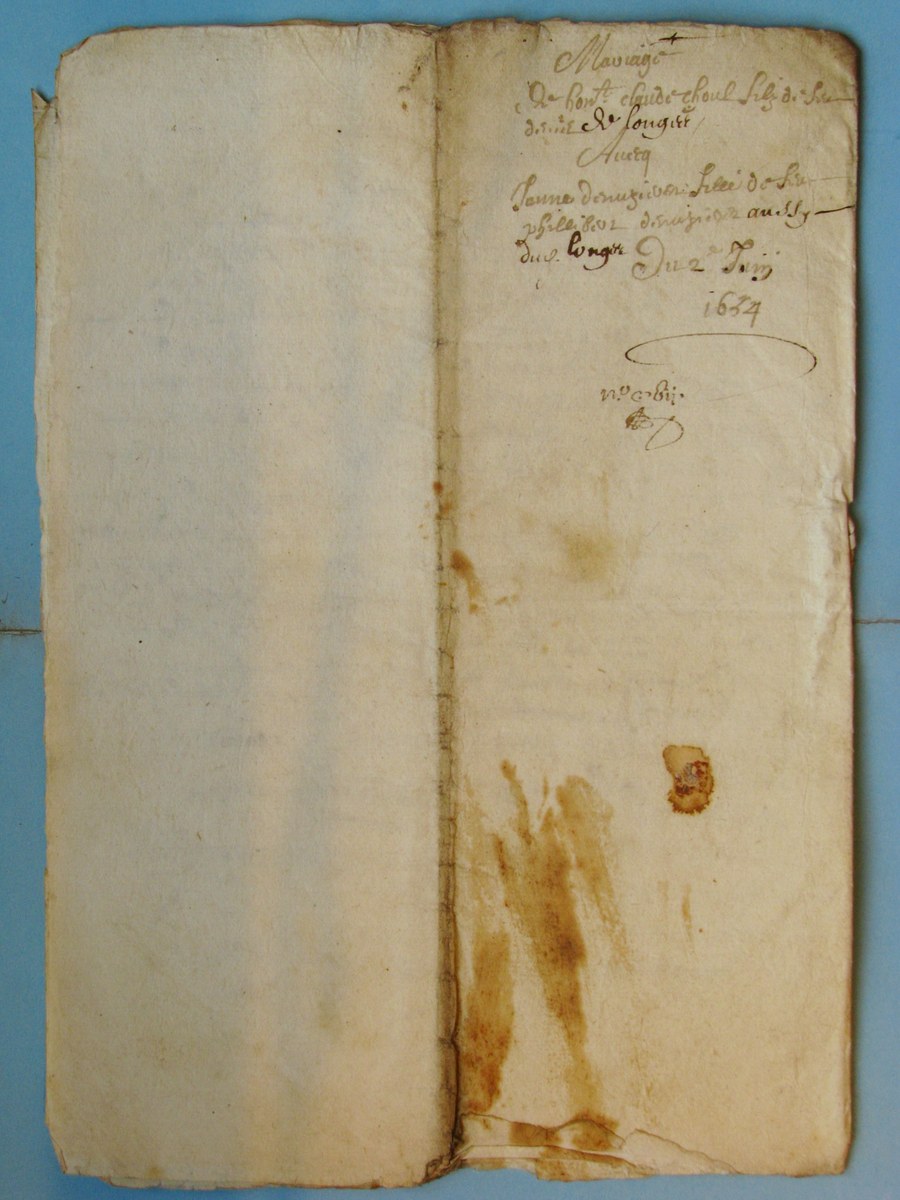 Mariage
de hon.t claude choul filz de feu
denis de longes
Avecq
Janne denuziere fille de feu
phillibert denuziere aussy
dud. longes Du 2e Juin
1654
n.o